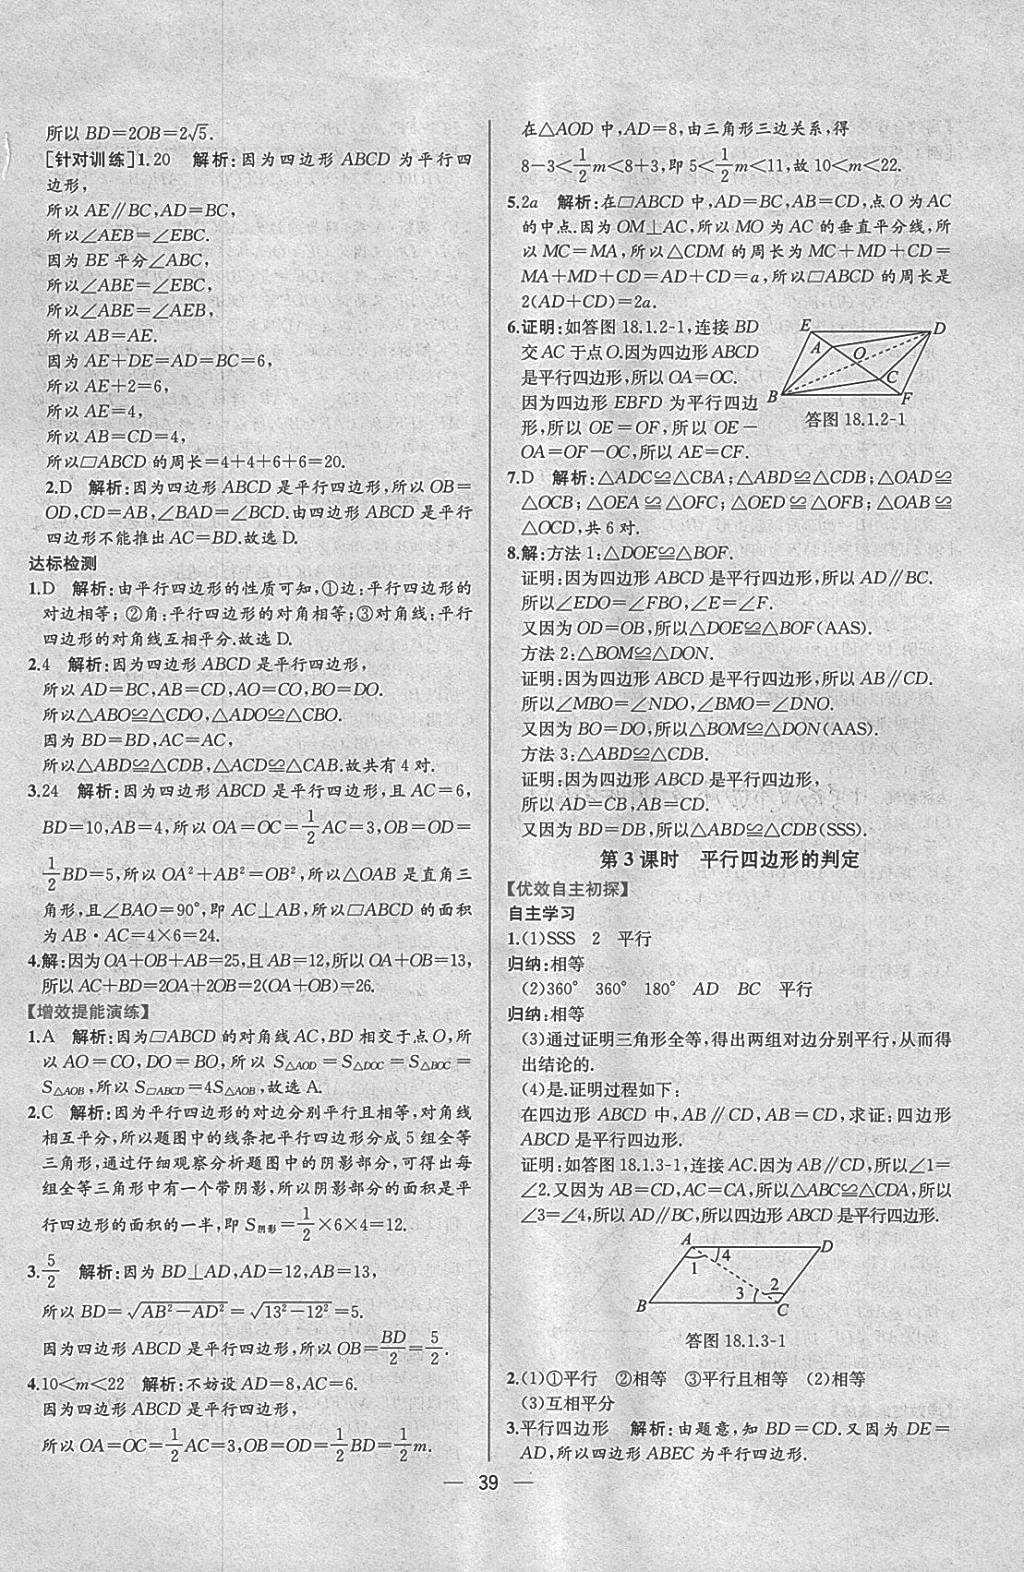 所以 BD=2OB=2√5.
[针对训练]1.20　解析:因为四边形 ABCD 为平行四
边形,
所以 AE∥BC,AD=BC,
所以∠AEB=∠EBC.
因为 BE 平分∠ABC,
所以∠ABE=∠EBC,
所以∠ABE=∠AEB,
所以 AB=AE.
因为 AE+DE=AD=BC=6,
所以 AE+2=6,
所以 AE=4,
所以 AB=CD=4,
所以▱ABCD 的周长=4+4+6+6=20.
2.D　解析:因为四边形 ABCD 是平行四边形,所以 OB=
OD,CD=AB,∠BAD=∠BCD.由四边形 ABCD 是平行
四边形不能推出 AC=BD.故选 D.
达标检测
1.D　解析:由平行四边形的性质可知,①边:平行四边形的
对边相等;②角:平行四边形的对角相等;③对角线:平行
四边形的对角线互相平分.故选 D.
2.4　解析:因为四边形 ABCD 是平行四边形,
所以 AD=BC,AB=CD,AO=CO,BO=DO.
所以△ABO≌△CDO,△ADO≌△CBO.
因为 BD=BD,AC=AC,
所以△ABD≌△CDB,△ACD≌△CAB.故共有 4 对.
3.24　解析:因为四边形 ABCD 是平行四边形,且 AC=6,
BD=10,AB=4,所以 OA=OC=1/2AC=3,OB=OD=
1/2BD=5,所以 OA²+AB²=OB²,所以△OAB 是直角三
角形,且∠BAO=90°,即 AC⊥AB,所以▱ABCD 的面积
为 AB·AC=4×6=24.
4.解:因为 OA+OB+AB=25,且 AB=12,所以 OA+OB=13,
所以 AC+BD=2OA+2OB=2(OA+OB)=26.
【增效提能演练】
1.A　解析:因为▱ABCD 的对角线 AC,BD 相交于点 O,所
以 AO=CO,DO=BO,所以 S△AOD=S△DOC=S△BOC=
S△AOB,所以 S▱ABCD=4S△AOB,故选 A.
2.C　解析:因为平行四边形的对边分别平行且相等,对角线
相互平分,所以题图中的线条把平行四边形分成 5 组全等
三角形,通过仔细观察分析题图中的阴影部分,可得出每
组全等三角形中有一个带阴影,所以阴影部分的面积是平
行四边形的面积的一半,即 S阴影=1/2×6×4=12.
3.5/2　解析:因为 BD⊥AD,AD=12,AB=13,
所以 BD=√(AB²−AD²)=√(13²−12²)=5.
因为四边形 ABCD 是平行四边形,所以 OB=BD/2=5/2.
4.10<m<22　解析:不妨设 AD=8,AC=6.
因为四边形 ABCD 是平行四边形,
所以 OA=OC=1/2AC=3,OB=OD=1/2BD=1/2m.
在△AOD 中,AD=8,由三角形三边关系,得
8−3<1/2m<8+3,即 5<1/2m<11,故 10<m<22.
5.2a　解析:在▱ABCD 中,AD=BC,AB=CD,点 O 为 AC
的中点.因为 OM⊥AC,所以 MO 为 AC 的垂直平分线,所
以 MC=MA,所以△CDM 的周长为 MC+MD+CD=
MA+MD+CD=AD+CD=a,所以▱ABCD 的周长是
2(AD+CD)=2a.
6.证明:如答图 18.1.2-1,连接 BD
交 AC 于点 O.因为四边形 ABCD
是平行四边形,所以 OA=OC.
因为四边形 EBFD 为平行四边
形,所以 OE=OF,所以 OE−
OA=OF−OC,所以 AE=CF.
E
D
A
O
C
B
F
答图 18.1.2-1
7.D　解析:△ADC≌△CBA;△ABD≌△CDB;△OAD≌
△OCB;△OEA≌△OFC;△OED≌△OFB;△OAB≌
△OCD,共 6 对.
8.解:方法 1:△DOE≌△BOF.
证明:因为四边形 ABCD 是平行四边形,所以 AD∥BC.
所以∠EDO=∠FBO,∠E=∠F.
又因为 OD=OB,所以△DOE≌△BOF(AAS).
方法 2:△BOM≌△DON.
证明:因为四边形 ABCD 是平行四边形,所以 AB∥CD.
所以∠MBO=∠NDO,∠BMO=∠DNO.
又因为 BO=DO,所以△BOM≌△DON(AAS).
方法 3:△ABD≌△CDB.
证明:因为四边形 ABCD 是平行四边形,
所以 AD=CB,AB=CD.
又因为 BD=DB,所以△ABD≌△CDB(SSS).
第 3 课时　平行四边形的判定
【优效自主初探】
自主学习
1.(1)SSS　2　平行
归纳:相等
(2)360°　360°　180°　AD　BC　平行
归纳:相等
(3)通过证明三角形全等,得出两组对边分别平行,从而得
出结论的.
(4)是.证明过程如下:
在四边形 ABCD 中,AB∥CD,AB=CD,求证:四边形
ABCD 是平行四边形.
证明:如答图 18.1.3-1,连接 AC.因为 AB∥CD,所以∠1=
∠2.又因为 AB=CD,AC=CA,所以△ABC≌△CDA,所以
∠3=∠4,所以 AD∥BC,所以四边形 ABCD 是平行四边形.
A
D
4
1
2
3
B
C
答图 18.1.3-1
2.(1)①平行　②相等　③平行且相等　(2)相等
(3)互相平分
3.平行四边形　解析:由题意,知 BD=CD.又因为 DE=
AD,所以四边形 ABEC 为平行四边形.
— 39 —